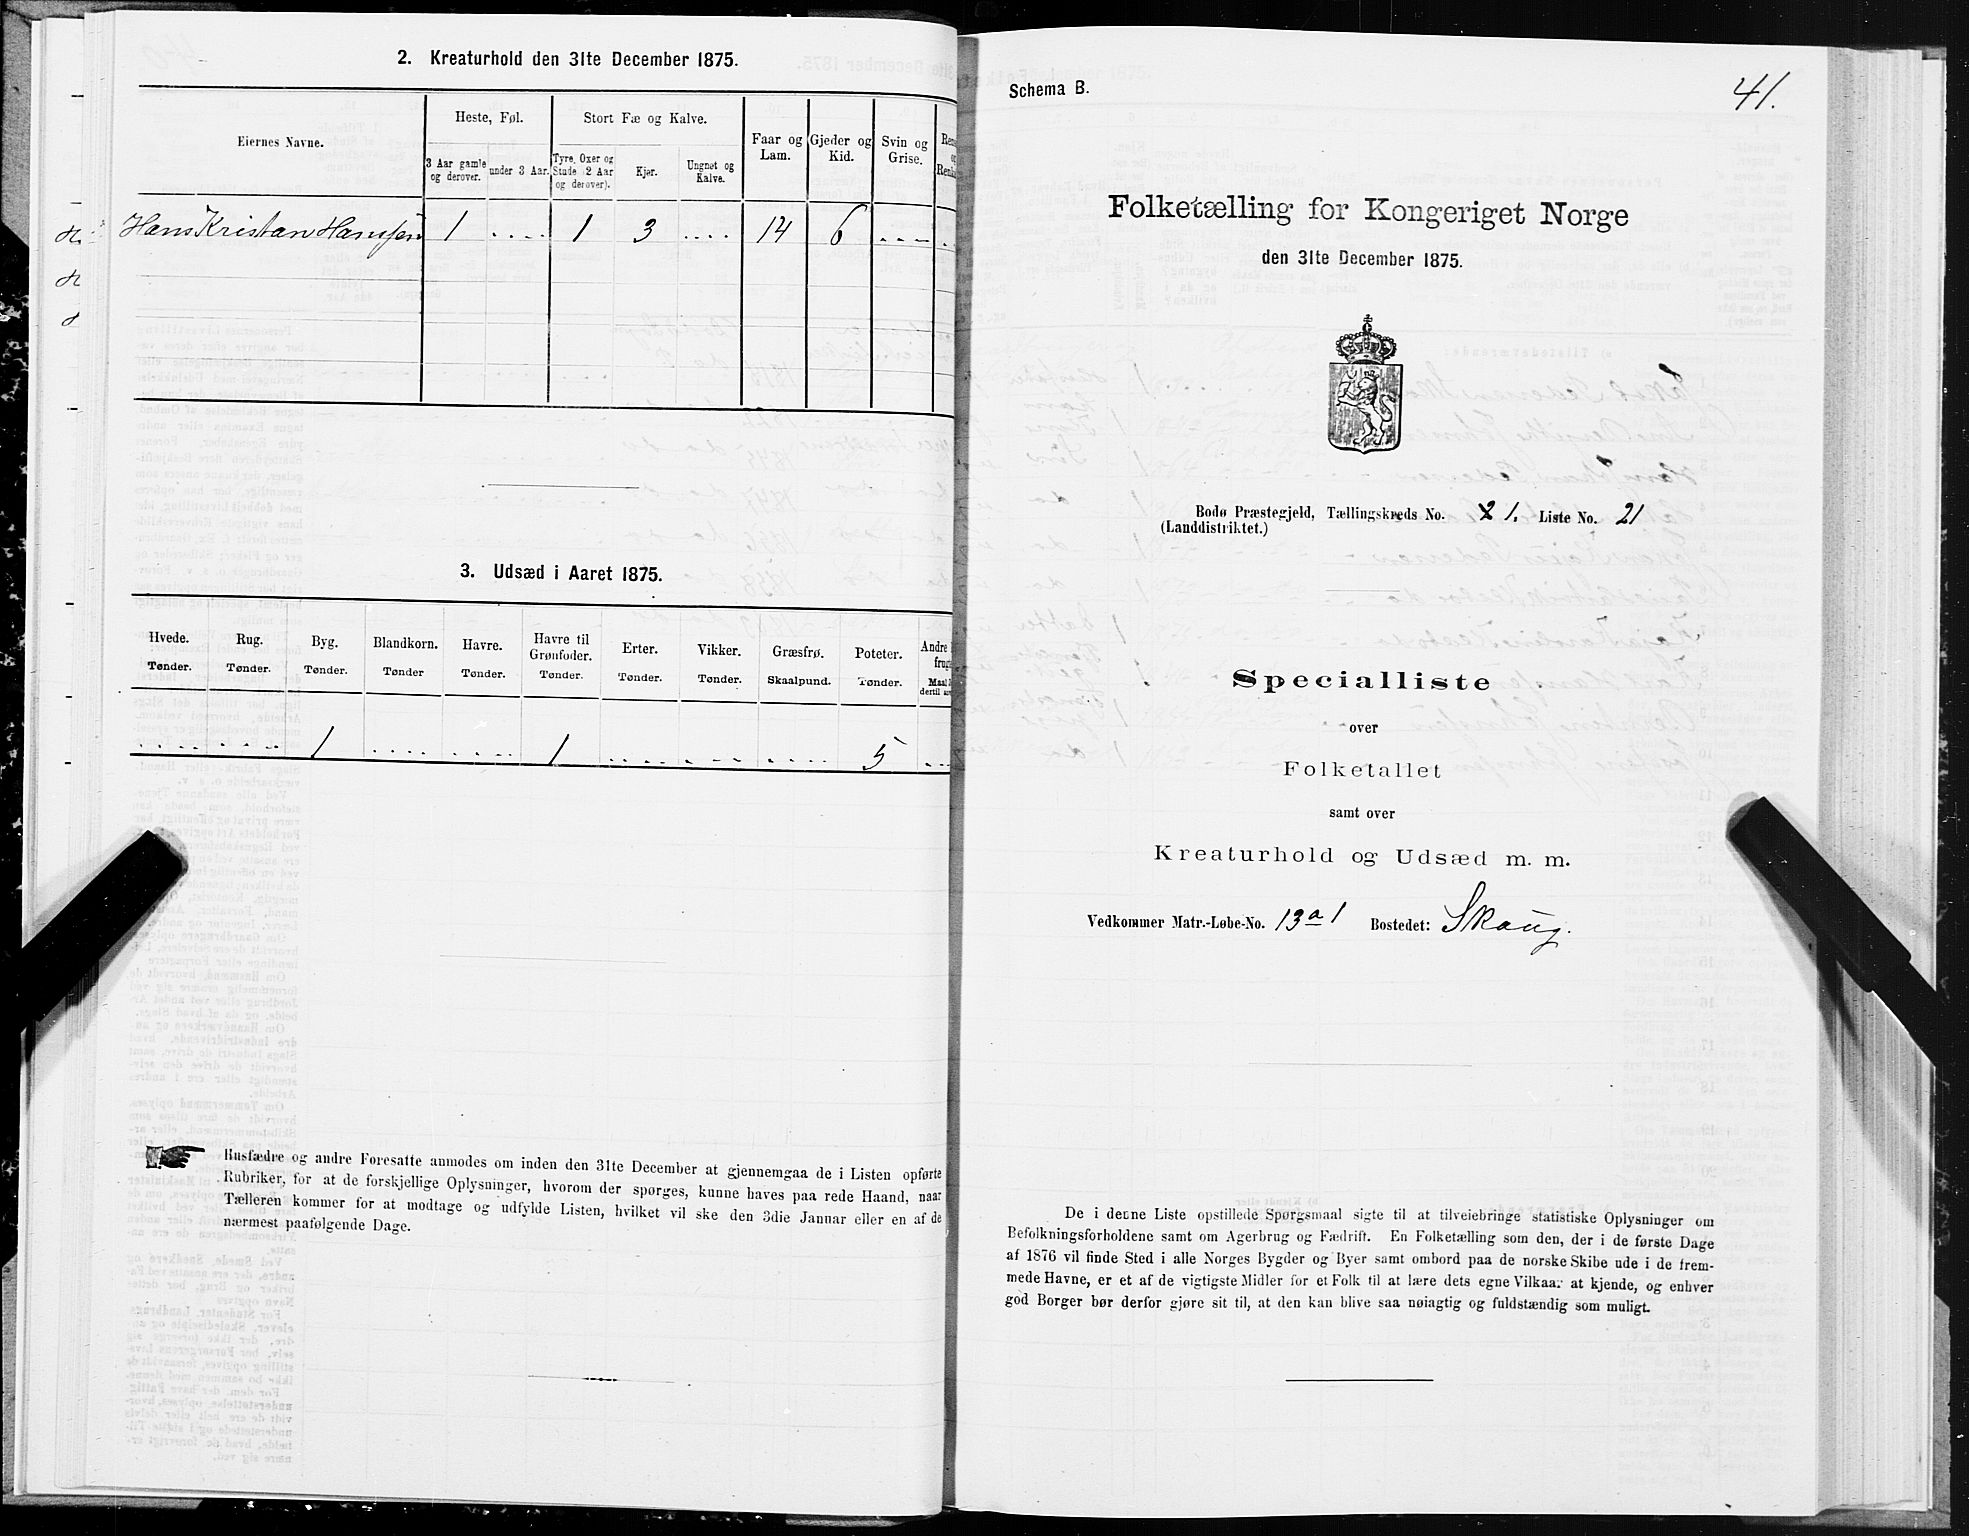 2. Kreaturhold den 31te December 1875.
Eiernes Navne.
Heste, Føl.
Stort Fæ og Kalve.
Faar og Lam.
Gjeder og Kid.
Svin og Grise.
3 Aar gamle og derover.
under 3 Aar.
Tyre, Oxer og Stude (2 Aar og derover).
Kjør.
Ungnøt og Kalve.
Hans Kristian Hansen 1 .... 1 3 .... 14 6 ....
3. Udsæd i Aaret 1875.
Hvede. Rug. Byg. Blandkorn. Havre. Havre til Grønfoder. Erter. Vikker. Græsfrø. Poteter.
Tønder. Tønder. Tønder. Tønder Tønder. Tønder. Tønder. Tønder. Skaalpund. Tønder.
.... .... 1 .... .... 1 .... .... .... 5 ...
Husfædre og andre Foresatte anmodes om inden den 31te December at gjennemgaa de i Listen opførte
Rubriker, for at de forskjellige Oplysninger, hvorom der spørges, kunne haves paa rede Haand, naar
Tælleren kommer for at modtage og udfylde Listen, hvilket vil ske den 3die Januar eller en af de
nærmest paafølgende Dage.
Schema B.
41.
Folketælling for Kongeriget Norge
den 31te December 1875.
Bodø Præstegjeld, Tællingskreds No. 1. Liste No. 21
(Landdistriktet.)
Specialliste
over
Folketallet
samt over
Kreaturhold og Udsæd m. m.
Vedkommer Matr.-Løbe-No. 13a1 Bostedet: Skaug.
De i denne Liste opstillede Spørgsmaal sigte til at tilveiebringe statistiske Oplysninger om
Befolkningsforholdene samt om Agerbrug og Fædrift. En Folketælling som den, der i de første Dage
af 1876 vil finde Sted i alle Norges Bygder og Byer samt ombord paa de norske Skibe ude i de frem-
mede Havne, er et af de vigtigste Midler for et Folk til at lære dets egne Vilkaar at kjende, og enhver
god Borger bør derfor gjøre sit til, at den kan blive saa nøiagtig og fuldstændig som muligt.